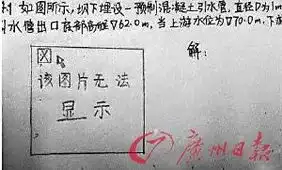 如图所示,坝下埋设一预制混凝土引水管,直径D为1m
水管出口底部高程▽62.0m,当上游水位为▽70.0m,下
解:
该图片无法
显示
廣州日报